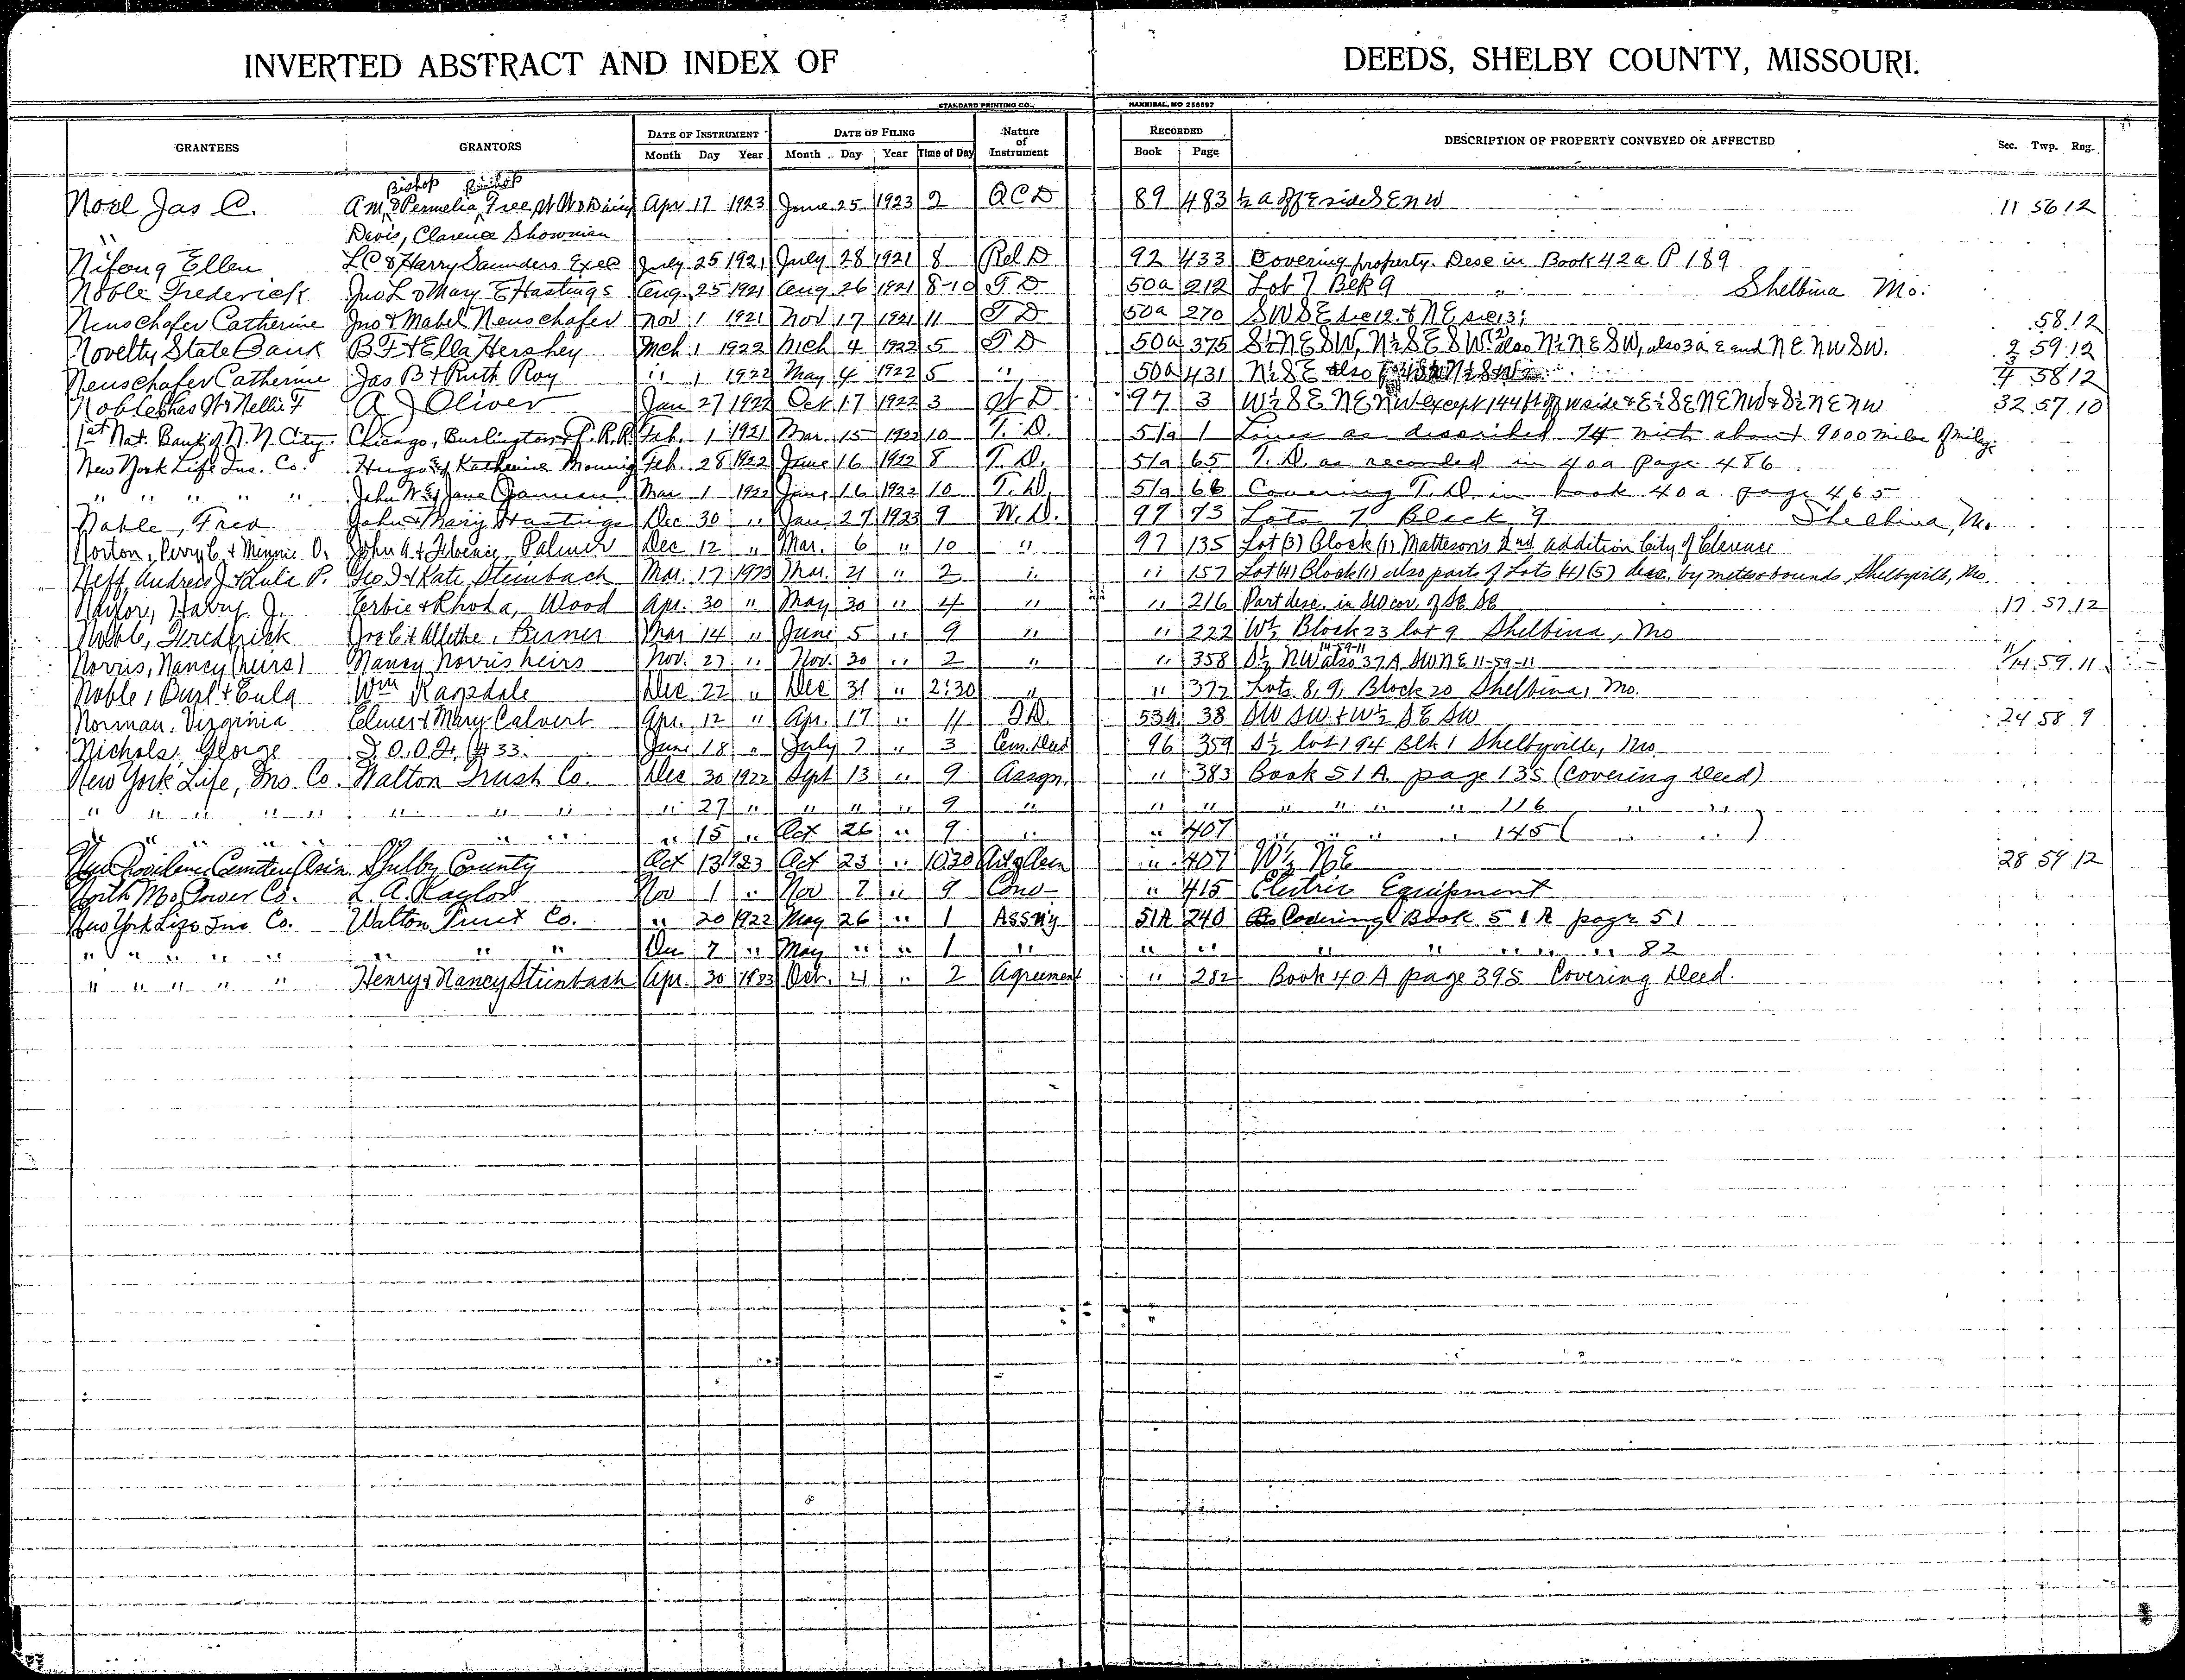 INVERTED ABSTRACT AND INDEX OF DEEDS, SHELBY COUNTY, MISSOURI.
STANDARD PRINTING CO., HANNIBAL, MO 256897
GRANTEES GRANTORS DATE OF INSTRUMENT DATE OF FILING Nature of Instrument RECORDED DESCRIPTION OF PROPERTY CONVEYED OR AFFECTED Sec. Twp. Rng.
Month Day Year Month Day Year Time of Day Book Page
Bishop Bishop
Noel Jas C. A M & Permelia, Apr 17 1923 June 25 1923 2 Q C D 89 483 ½ a off E side S E N W 11 56 12
" Davis, Clarence Showman
Nifong Ellen L C & Harry Saunders Exec July 25 1921 July 28 1921 8 Rel D 92 433 Covering property Desc in Book 42a P 189
Noble Frederick Jno L & Mary E Hastings Aug 25 1921 Aug 26 1921 8-10 T D 50a 212 Lot 7 Blk 9 " Shelbina Mo.
Neuschafer Catherine Jno & Mabel Neuschafer Nov 1 1921 Nov 17 1921 11 T D 50a 270 S W S E sec 12 & N E sec 13; 58 12
Novelty State Bank B F & Ella Hershey Mch 1 1922 Mch 4 1922 5 T D 50a 375 S½ N E S W, N½ S E S W also N½ N E S W, also 3 a E end N E N W S W. 2 59 12
Neuschafer Catherine Jas B & Ruth Roy " 1 1922 May 4 1922 5 " 50a 431 N½ S E also 4 58 12
Noble Chas W & Nellie F A J Oliver Jan 27 1922 Oct 17 1922 3 W D 97 3 W½ S E N E N W except 144 ft off W side & E½ S E N E N W & S½ N E N W 32 57 10
1st Nat. Bank of N. Y. City Chicago, Burlington & Q. R.R. Feb. 1 1921 Mar. 15 1922 10 T. D. 51a 1 Lines as described 74 mich about 9000 miles of mily.
New York Life Ins. Co. Hugo & Katherine Monnig Feb. 28 1922 June 16 1922 8 T. D. 51a 65 T. D. as recorded in 40a page 486
" " " " " John W & Jane Mar 1 1922 June 16 1922 10 T. D. 51a 66 Covering T. D. in book 40a page 465
Noble, Fred. John & Mary Hastings Dec 30 " Jan 27 1923 9 W. D. 97 73 Lots 7 Block 9 Shelbina, Mo.
Norton, Perry C. & Minnie O. John A. & Palmer Dec 12 " Mar. 6 " 10 " 97 135 Lot (3) Block (1) Matteson's 2nd addition City of Clarence
Neff, Andrew J. & Lula P. Geo J & Kate Steinbach Mar. 17 1923 Mar. 21 " 2 " " 157 Lot (4) Block (1) also parts of Lots (4) (5) desc. by metes & bounds, Shelbyville, Mo.
Naylor, Harry J. Erbie & Rhoda, Wood Apr. 30 " May 30 " 4 " " 216 Part desc. in SW cor. of SE SE 17 57 12
Noble, Frederick Ora C & Allethe, Birner Mar 14 " June 5 " 9 " " 222 W½ Block 23 lot 9 Shelbina, Mo
Norris, Nancy (heirs) Nancy Norris heirs Nov. 27 " Nov. 30 " 2 " " 358 S½ NW 14-59-11 also 37A SW NE 11-59-11 11/14 59 11
Noble, Burl & Eula Wm Ragsdale Dec 22 " Dec 31 " 2:30 " " 372 Lots 8, 9, Block 20 Shelbina, Mo.
Norman, Virginia Elmer & Mary Calvert Apr. 12 " Apr. 17 " 11 T.D. 53a 38 SW SW & W½ SE SW 24 58 9
Nichols, George I.O.O.F. #33. June 18 " July 7 " 3 Cem. Deed 96 359 S½ lot 194 Blk 1 Shelbyville, Mo.
New York Life, Ins. Co. Walton Trust Co. Dec 30 1922 Sept 13 " 9 Assgn. " 383 Book 51A page 135 (covering deed)
" " " " " " " " " 27 " " " " 9 " " " " " " " 116 " "
" " " " " " " " 15 " Oct 26 " 9 " " 407 " " " " 145 ( " " )
New Providence Cemetery Assn Shelby County Oct 13 1923 Oct 23 " 10:30 " 407 W½ NE 28 59 12
North Mo Power Co. L. A. Kaylor Nov 1 " Nov 7 " 9 Cond " 415 Electric Equipment
New York Life Ins Co. Walton Trust Co. " 20 1922 May 26 " 1 Assn'g 51A 240 Covering Book 51A page 51
" " " " " " " " Dec 7 " May " " 1 " " " " " " " " 82
" " " " " Henry & Nancy Steinbach Apr. 30 1923 Oct. 4 " 2 Agreement " 282 Book 40A page 395 Covering Deed.